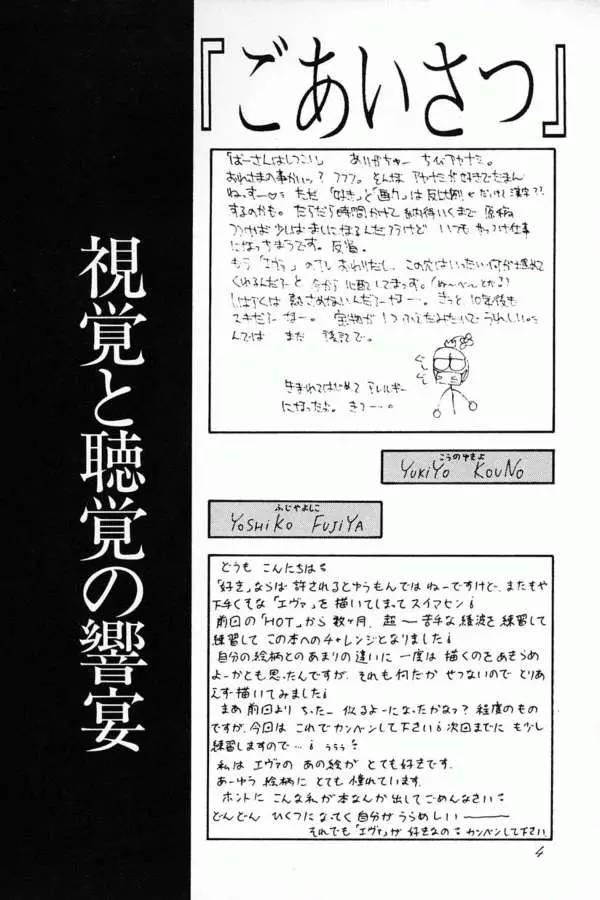 『ごあいさつ』
視覚と聴覚の響宴
「ばーさんはしつこい」 ありがちゅー ちびアヤナミ。
ねっすー たださ 「好き」と「画力」は反比例
するのかも。だらだら時間かけて納得いくまで 原稿
になっちまうです。反省。
もう「エヴァ」のTVもおわりだし、この穴はいったい何が埋めて
くれるんだろーと 今から心配してまっす。
しばらくは熱さめないんだろーなー…。きっと10年後も
スキだろーなー。宝物が1つふえたみたいでうれしい。
んでは また 後記で。
生まれてはじめて アレルギー
になったよ。
こうのゆきよ
YUKIYO KOUNO
ふじやよしこ
YOSHIKO FUJIYA
どうも こんにちは
「好き」ならば 許されるとゆうもんでは ねーですけど、またもや
下手くそな「エヴァ」を 描いてしまって スイマセン!
前回の「HOT」から 数ヶ月、超〜苦手な綾波を練習して
練習して この本への チャレンジとなりました!
自分の絵柄との あまりの違いに 一度は 描くのをあきらめ
よーかとも思ったんですが、それも何だか せつないので とりあ
えず描いてみました!
まぁ 前回より ちったぁー 似るよーになったかなぁ? 程度のもの
ですが、今回は これで カンベンして下さい! 次回までに も少し
練習しますので…! ぅぅぅ
私は エヴァの あの絵が とても好きです。
あーゆう 絵柄に とても 憧れています。
ホントに こんな私が本なんか出して ごめんなさい
どんどん ひくつになってく 自分が うらめしい———
それでも「エヴァ」が 好きなの カンベンして下さい。
4